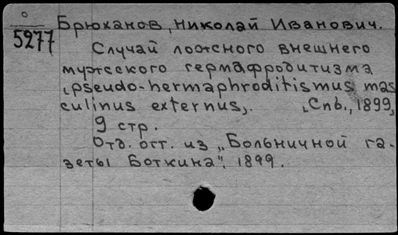 о
5277
Брюханов, Николай Иванович.
Случай ложного внешнего
мужского гермафродитизма
(pseudo-hermaphroditismus mas
culinus externus). Спб., 1899,
9 стр.
Отд. отт. из „Больничной га-
зеты Боткина", 1899.